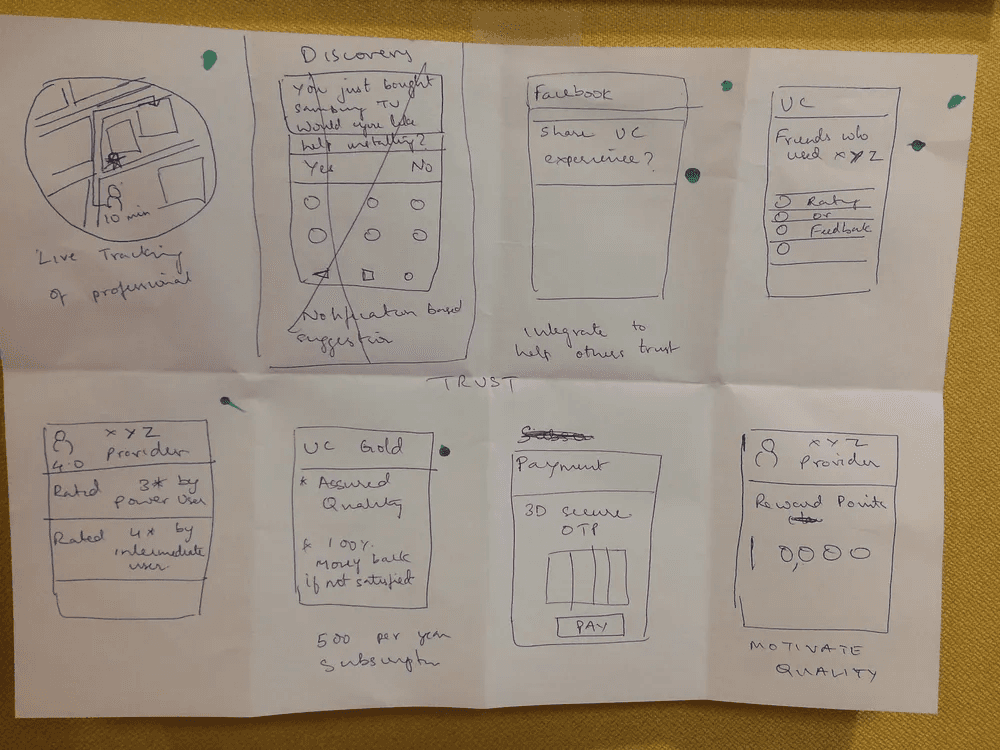 10 min
Live Tracking
of professional
Discovery
You just bought
Samsung TV
Would you like
help installing?
Yes No
Notification based
suggestion
Facebook
Share UC
experience?
Integrate to
help others trust
UC
Friends who
used XYZ
Rating
or
Feedback
TRUST
XYZ
Provider
4.0
Rated 3* by
power user
Rated 4* by
intermediate
user
UC Gold
* Assured
Quality
* 100%
Money back
if not satisfied
500 per year
Subscription
Payment
3D secure
OTP
PAY
XYZ
Provider
Reward Points
10,000
MOTIVATE
QUALITY